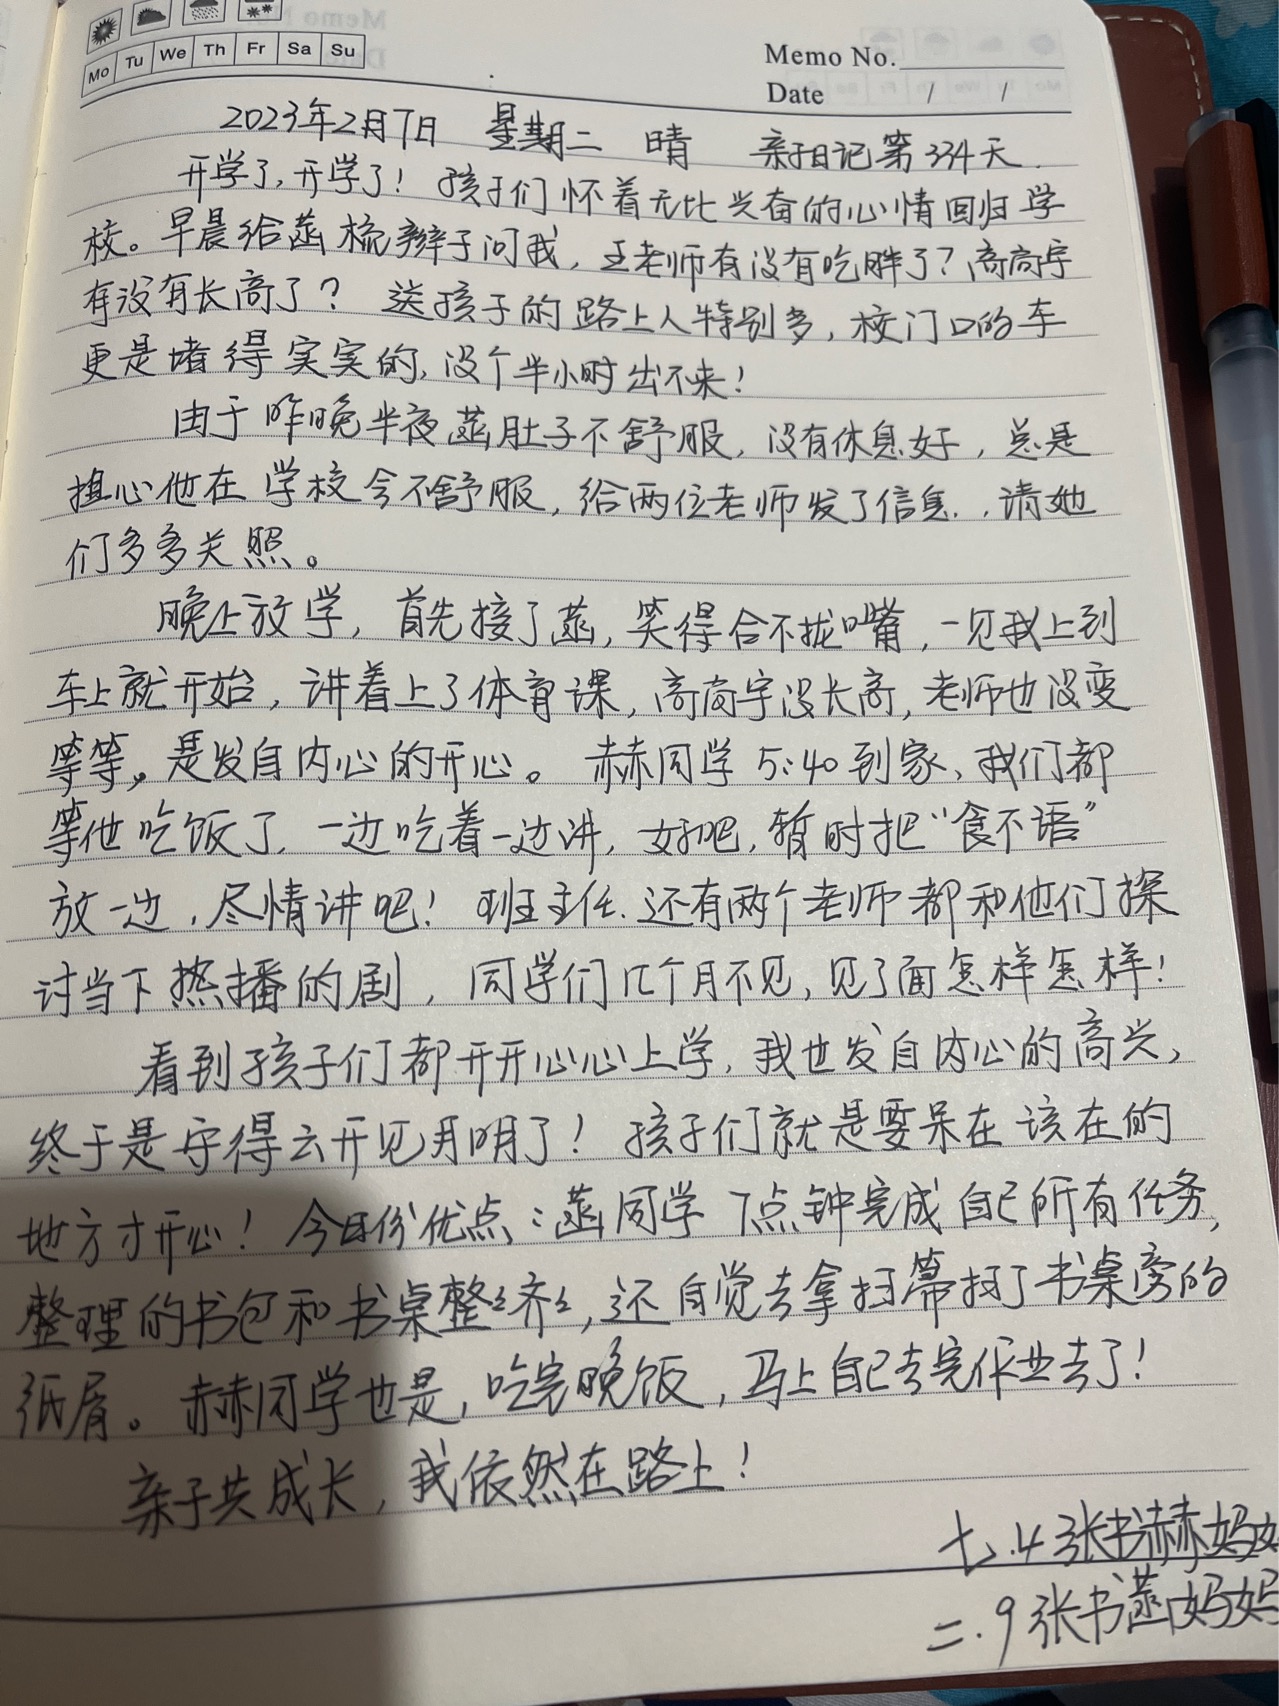 Mo Tu We Th Fr Sa Su
Memo No.
Date / /
2023年2月7日 星期二 晴 亲子日记第334天
开学了,开学了!孩子们怀着无比兴奋的心情回归学
校。早晨给菡梳辫子问我,王老师有没有吃胖了?高高宇
有没有长高了? 送孩子的路上人特别多,校门口的车
更是堵得实实的,没个半小时出不来!
由于昨晚半夜菡肚子不舒服,没有休息好,总是
担心他在学校会不舒服,给两位老师发了信息,请她
们多多关照。
晚上放学,首先接了菡,笑得合不拢嘴,一见我上到
车上就开始,讲着上了体育课,高高宇没长高,老师也没变
等等。是发自内心的开心。赫同学5:40到家,我们都
等他吃饭了,一边吃着一边讲,好吧,暂时把“食不语”
放一边,尽情讲吧!班主任.还有两个老师都和他们探
讨当下热播的剧,同学们几个月不见,见了面怎样怎样!
看到孩子们都开开心心上学,我也发自内心的高兴,
终于是守得云开见月明了!孩子们就是要呆在该在的
地方才开心!今日份优点:菡同学7点钟完成自己所有任务,
整理的书包和书桌整整齐齐,还自觉去拿扫帚扫了书桌旁的
纸屑。赫同学也是,吃完晚饭,马上自己去完作业去了!
亲子共成长,我依然在路上!
七.4张书赫妈妈
二.9张书菡妈妈